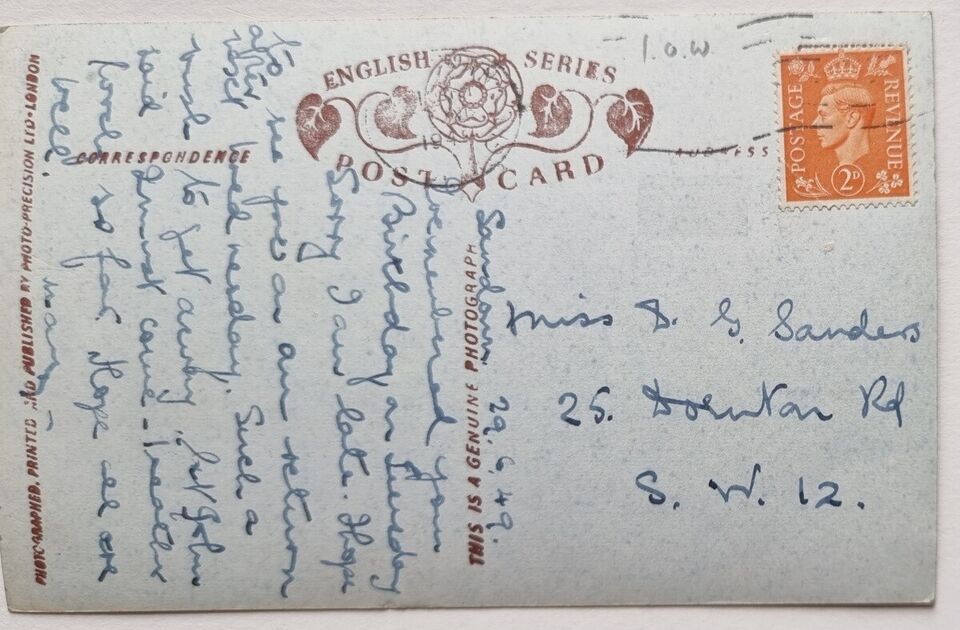 I.O.W.
ENGLISH SERIES
POST CARD
CORRESPONDENCE
ADDRESS
POSTAGE
REVENUE
2D
PHOTOGRAPHED, PRINTED AND PUBLISHED BY PHOTO-PRECISION LTD · LONDON
THIS IS A GENUINE PHOTOGRAPH
Sandown. 29.6.49.
remembered your
Birthday on Tuesday
Sorry I am late. Hope
to see you on our return
after next Wednesday. Such a
rush to get away, but John
said I must come. Weather
lovely so far. Hope all are
well.
Mary
Miss D. G. Sanders
25. Dornton Rd
S. W. 12.